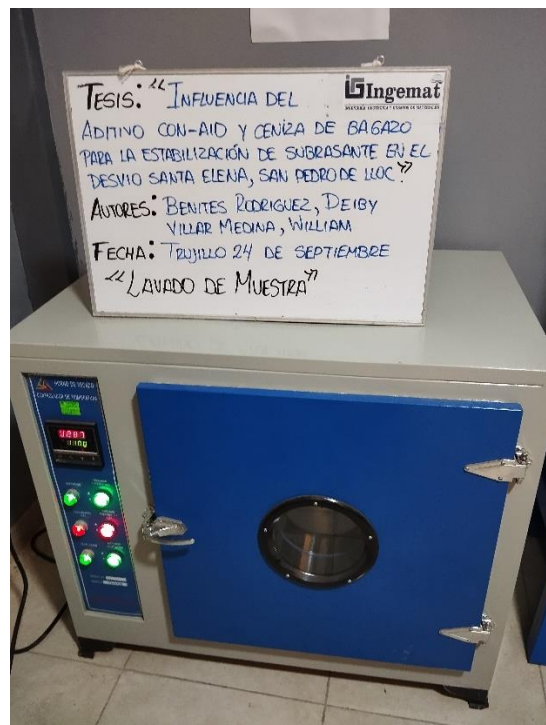 TESIS: "INFLUENCIA DEL
Ingemat
ADITIVO CON-AID Y CENIZA DE BAGAZO
PARA LA ESTABILIZACIÓN DE SUBRASANTE EN EL
DESVIO SANTA ELENA, SAN PEDRO DE LLOC"
AUTORES: BENITES RODRIGUEZ, DEIBY
VILLAR MEDINA, WILLIAM
FECHA: TRUJILLO 24 DE SEPTIEMBRE
"LAVADO DE MUESTRA"